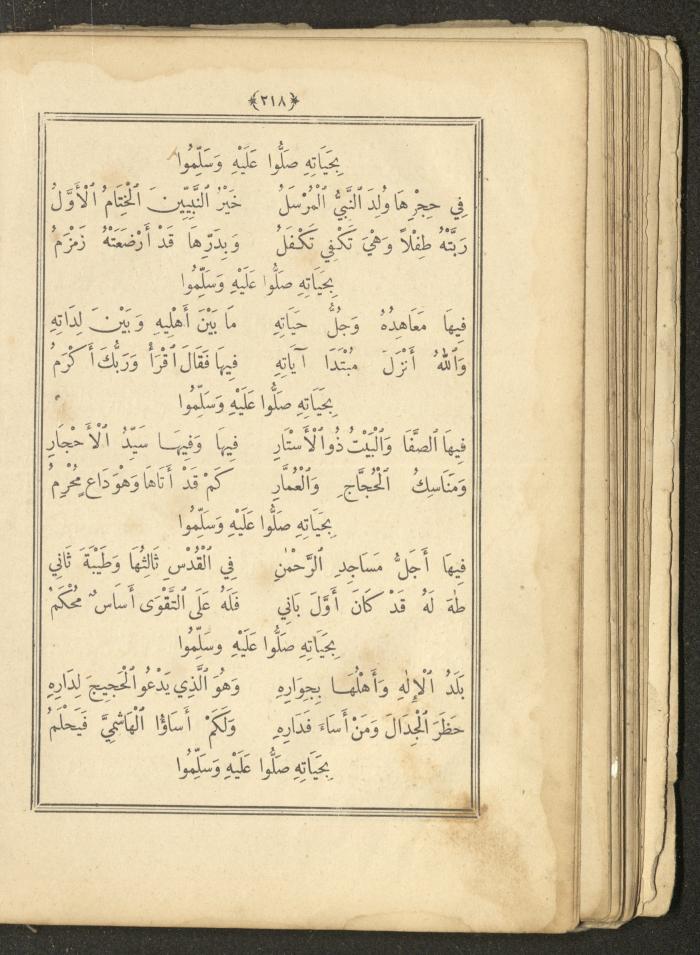 ﴿٢١٨﴾
بِحَيَاتِهِ صَلُّوا عَلَيْهِ وَسَلِّمُوا
فِي حِجْرِهَا وُلِدَ ٱلنَّبِيُّ ٱلْمُرْسَلُ خَيْرُ ٱلنَّبِيِّينَ ٱلْخِتَامُ ٱلْأَوَّلُ
رَبَّتْهُ طِفْلاً وَهْيَ تَكْفِي تَكْفَلُ وَبِدَرِّهَا قَدْ أَرْضَعَتْهُ زَمْزَمُ
بِحَيَاتِهِ صَلُّوا عَلَيْهِ وَسَلِّمُوا
فِيهَا مَعَاهِدُهُ وَجُلُّ حَيَاتِهِ مَا بَيْنَ أَهْلِيهِ وَبَيْنَ لِدَاتِهِ
وَٱللهُ أَنْزَلَ مُبْتَدَا آيَاتِهِ فِيهَا فَقَالَ ٱقْرَأْ وَرَبُّكَ أَكْرَمُ
بِحَيَاتِهِ صَلُّوا عَلَيْهِ وَسَلِّمُوا
فِيهَا ٱلصَّفَا وَٱلْبَيْتُ ذُو ٱلْأَسْتَارِ فِيهَا وَفِيهَا سَيِّدُ ٱلْأَحْجَارِ
وَمَنَاسِكُ ٱلْحُجَّاجِ وَٱلْعُمَّارِ كَمْ قَدْ أَتَاهَا وَهْوَ دَاعٍ مُحْرِمُ
بِحَيَاتِهِ صَلُّوا عَلَيْهِ وَسَلِّمُوا
فِيهَا أَجَلُّ مَسَاجِدِ ٱلرَّحْمٰنِ فِي ٱلْقُدْسِ ثَالِثُهَا وَطَيْبَةَ ثَانِي
طٰهَ لَهُ قَدْ كَانَ أَوَّلَ بَانِي فَلَهُ عَلَى ٱلتَّقْوَى أَسَاسٌ مُحْكَمُ
بِحَيَاتِهِ صَلُّوا عَلَيْهِ وَسَلِّمُوا
بَلَدُ ٱلْإِلٰهِ وَأَهْلُهَا بِجِوَارِهِ وَهُوَ ٱلَّذِي يَدْعُو ٱلْحَجِيجَ لِدَارِهِ
حَظَرَ ٱلْجِدَالَ وَمَنْ أَسَاءَ فَدَارِهِ وَلَكَمْ أَسَاؤُا ٱلْهَاشِمِيَّ فَيَحْلَمُ
بِحَيَاتِهِ صَلُّوا عَلَيْهِ وَسَلِّمُوا